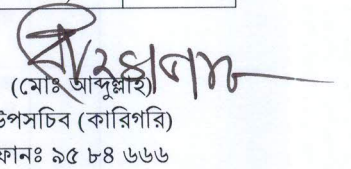 (মোঃ আব্দুল্লাহ)
উপসচিব (কারিগরি)
ফোনঃ ৯৫ ৮৪ ৬৬৬